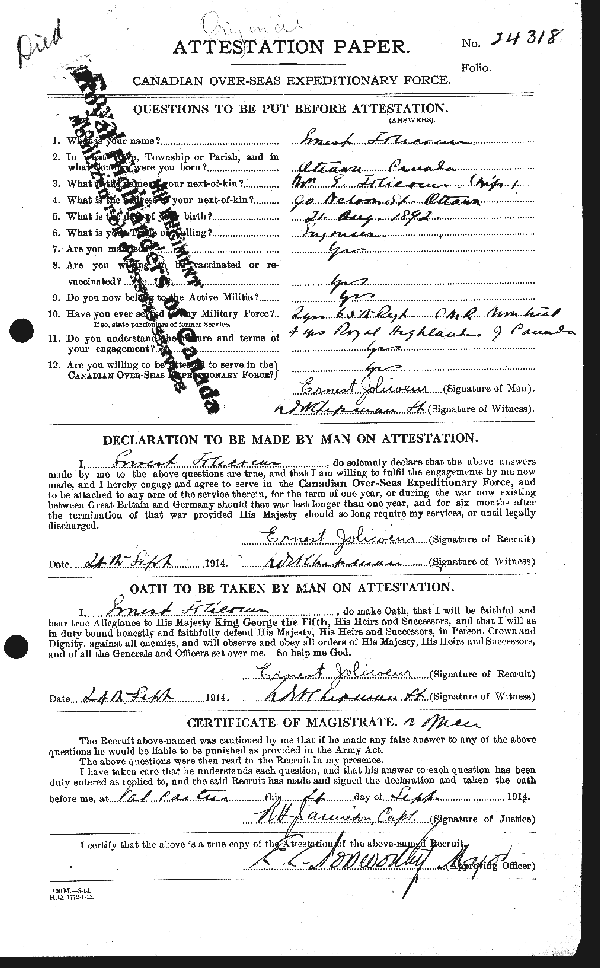 Original
Died
ATTESTATION PAPER.
No. 24318
Folio.
CANADIAN OVER-SEAS EXPEDITIONARY FORCE.
QUESTIONS TO BE PUT BEFORE ATTESTATION.
(ANSWERS).
1. What is your name? Ernest
2. In what Town, Township or Parish, and in
what Country were you born? Ottawa Canada
3. What is the name of your next-of-kin? Mrs E (wife)
4. What is the address of your next-of-kin? 90 St Ottawa
5. What is the date of your birth? 21 Aug 1892
6. What is your Trade or Calling? Engineer
7. Are you married? Yes
8. Are you willing to be vaccinated or re-
vaccinated? Yes
9. Do you now belong to the Active Militia? Yes
10. Have you ever served in any Military Force? 2 yrs Montreal
If so, state particulars of former Service. 4 yrs Royal Highlanders of Canada
11. Do you understand the nature and terms of
your engagement? Yes
12. Are you willing to be attested to serve in the
CANADIAN OVER-SEAS EXPEDITIONARY FORCE? Yes
Ernest (Signature of Man).
Chipman Lt (Signature of Witness).
DECLARATION TO BE MADE BY MAN ON ATTESTATION.
I, Ernest , do solemnly declare that the above answers
made by me to the above questions are true, and that I am willing to fulfil the engagements by me now
made, and I hereby engage and agree to serve in the Canadian Over-Seas Expeditionary Force, and
to be attached to any arm of the service therein, for the term of one year, or during the war now existing
between Great Britain and Germany should that war last longer than one year, and for six months after
the termination of that war provided His Majesty should so long require my services, or until legally
discharged.
Ernest (Signature of Recruit)
Date 24th Sept 1914. Chipman (Signature of Witness)
OATH TO BE TAKEN BY MAN ON ATTESTATION.
I, Ernest , do make Oath, that I will be faithful and
bear true Allegiance to His Majesty King George the Fifth, His Heirs and Successors, and that I will as
in duty bound honestly and faithfully defend His Majesty, His Heirs and Successors, in Person, Crown and
Dignity, against all enemies, and will observe and obey all orders of His Majesty, His Heirs and Successors,
and of all the Generals and Officers set over me. So help me God.
Ernest (Signature of Recruit)
Date 24th Sept 1914. Chipman Lt (Signature of Witness)
CERTIFICATE OF MAGISTRATE.
The Recruit above-named was cautioned by me that if he made any false answer to any of the above
questions he would be liable to be punished as provided in the Army Act.
The above questions were then read to the Recruit in my presence.
I have taken care that he understands each question, and that his answer to each question has been
duly entered as replied to, and the said Recruit has made and signed the declaration and taken the oath
before me, at Valcartier this 24 day of Sept 1914.
Jamieson Capt (Signature of Justice)
I certify that the above is a true copy of the Attestation of the above-named Recruit.
Norsworthy Major (Approving Officer)